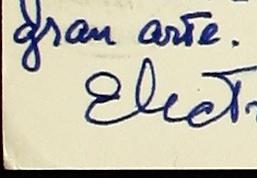 gran arte.
Elect